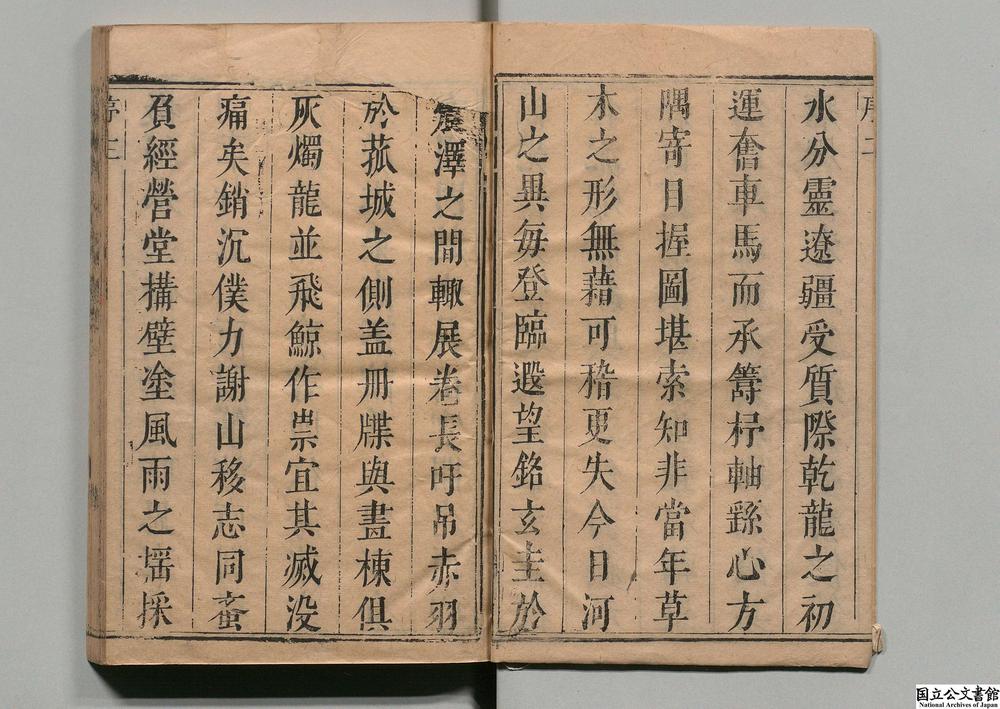 序二
水分靈遼疆受質際乾龍之初
運奮車馬而承籌杼軸繇心方
隅寄目握圖堪索知非當年草
木之形無藉可稽更失今日河
山之異每登臨遐望銘玄圭於
宸澤之間輙展卷長吁吊赤羽
於菰城之側盖冊牒與畫棟俱
灰燭龍並飛鯨作祟宜其滅没
痛矣銷沉僕力謝山移志同蚉
負經營堂搆壁塗風雨之揺採
序三
国立公文書館
National Archives of Japan